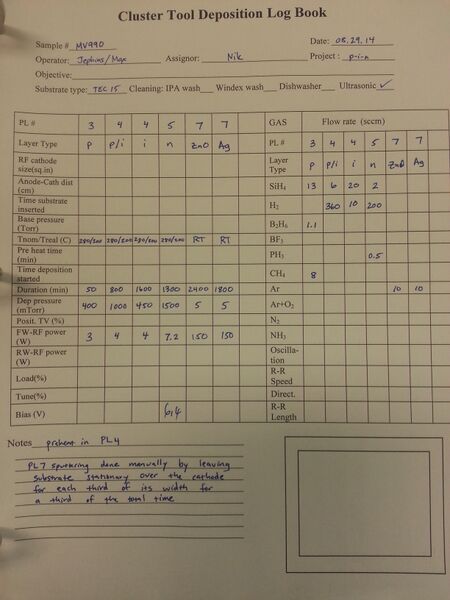 Cluster Tool Deposition Log Book
Sample # MV990 Date: 08.29.14
Operator: Jephias/Max Assignor: Nik Project: p-i-n
Objective:
Substrate type: TEC 15 Cleaning: IPA wash Windex wash Dishwasher Ultrasonic ✓
PL # 3 4 4 5 7 7 GAS Flow rate (sccm)
Layer Type P P/i i n ZnO Ag PL # 3 4 4 5 7 7
RF cathode size(sq.in) Layer Type P P/i i n ZnO Ag
Anode-Cath dist (cm) SiH4 13 6 20 2
Time substrate inserted H2 360 10 200
Base pressure (Torr) B2H6 1.1
Tnom/Treal (C) 280/200 280/200 280/200 280/200 RT RT BF3
Pre heat time (min) PH3 0.5
Time deposition started CH4 8
Duration (min) 50 800 1600 1300 2400 1800 Ar 10 10
Dep pressure (mTorr) 400 1000 450 1500 5 5 Ar+O2
Posit. TV (%) N2
FW-RF power (W) 3 4 4 7.2 150 150 NH3
RW-RF power (W) Oscilla-tion
Load(%) R-R Speed
Tune(%) Direct.
Bias (V) 614 R-R Length
Notes preheat in PL4
PL7 sputtering done manually by leaving
substrate stationary over the cathode
for each third of its width for
a third of the total time